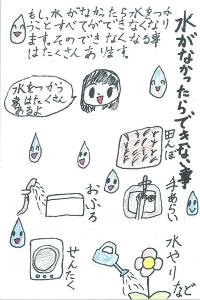 水がなかったらできない事
もし、水がなかったら水をつか
うことすべてができなくなり
ます。そのできなくなる事
はたくさんあります。
水をつかう
事はたくさん
あるよ
田んぼ
手あらい
おふろ
水やりなど
せんたく